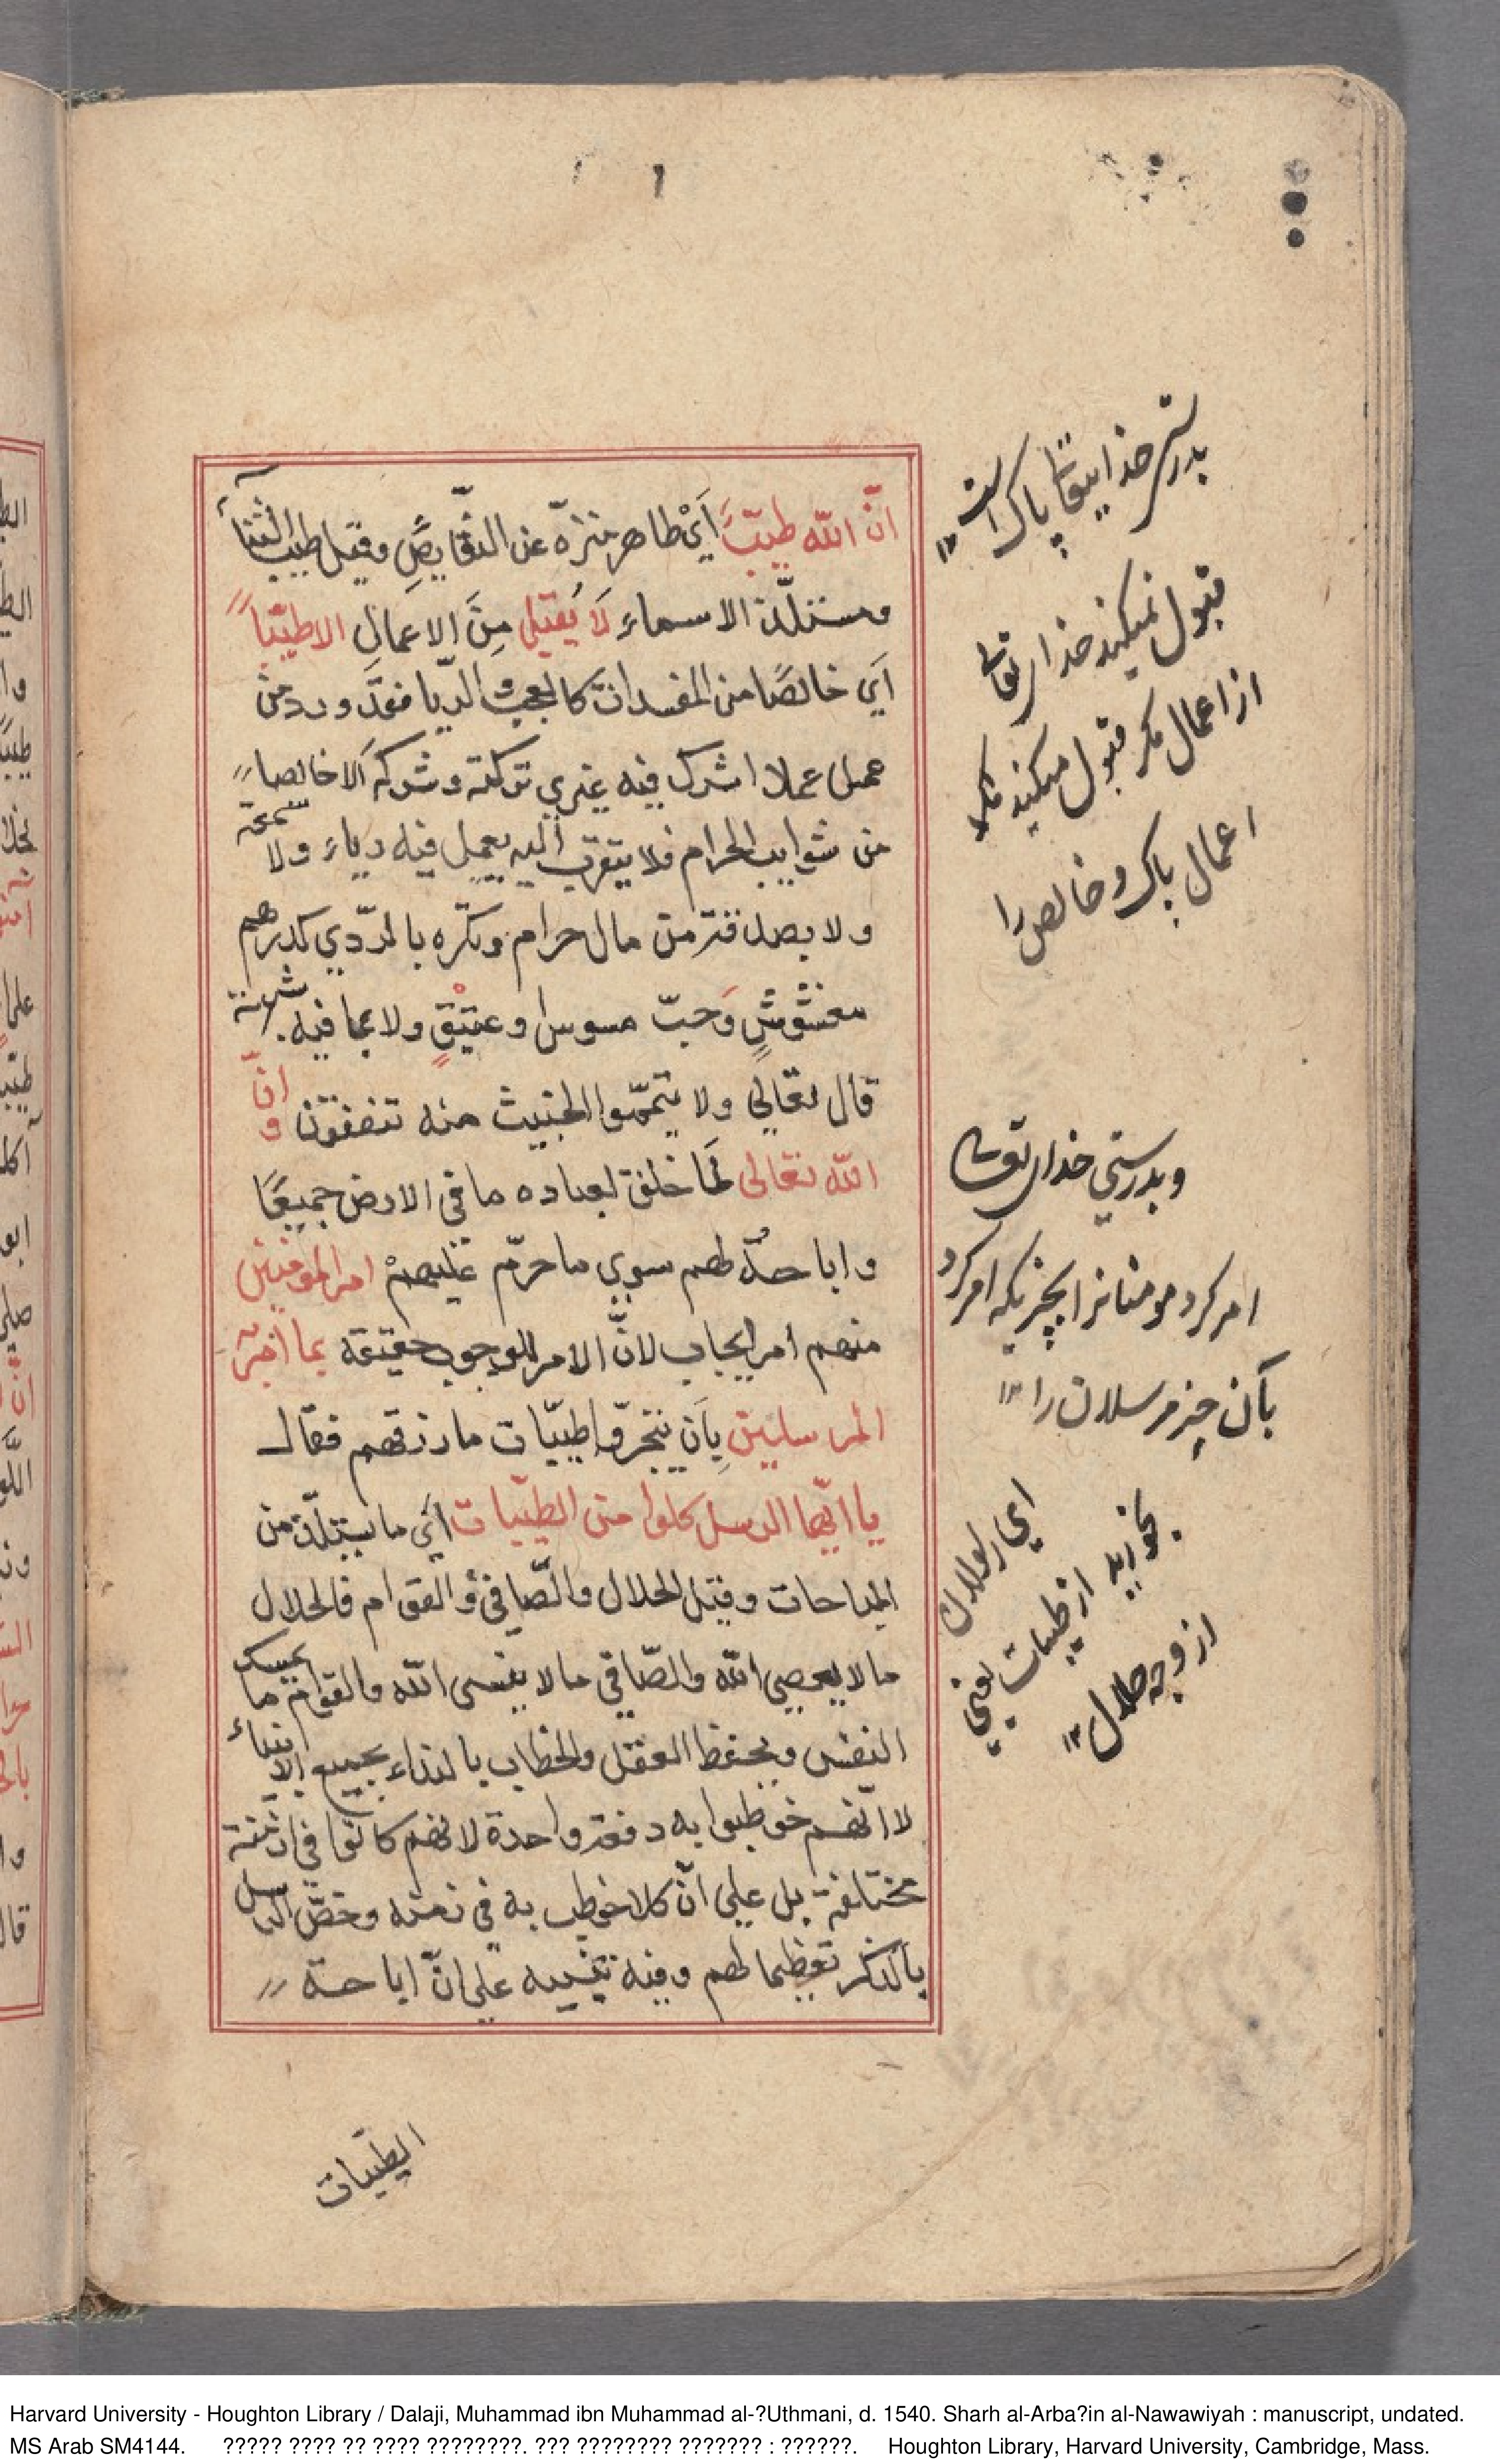 انّ الله طيّبٌ أيْ طاهر منزّه عن النّقايص وقيل طيب الثنآء
ومستلذّ الاسماء لَا يُقبَل مِنَ الاعمال الا طيّباً
أي خالصًا من المفسدات كالعجب والريا فقد ورد من
عمل عملا اشرك فيه غيري تركته وشركه الا خالصا
من شوايب الحرام فلا يتقرب اليه بعمل فيه رياء ولا سمعة
ولا بصدقة من مال حرام وتكره بالردي كدرهم
مغشوشٍ وَحبّ مسوس او عتيقٍ ولا بما فيه شبهة
قال تعالي ولا تيمّموا الخبيث منه تنفقون وانّ
الله تعالى لما خلق لعباده ما في الارض جميعًا
واباحه لهم سوي ما حرّم عليهمْ امر المؤمنين
منهم أمر ايجاب لانّ الامر للوجوب حقيقة بما أمر به
المرسلين بِأن يتحرّوا طيّبات ما رزقهم فقال
يا ايّها الرسل كلوا من الطيّبات أي ما يستلذّ من
المباحات وقيل الحلال والصّافي والقوام فالحلال
ما لا يعصي الله والصّافي ما لا ينسى الله والقوام ما يمسك
النفس ويحفظ العقل والخطاب بالنداء بجميع الانبياء
لا انّهم خوطبوا به دفعة واحدة لانهم كانوا في ازمنة
مختلفة بل علي انّ كلا خوطب به في زمنه وخصّ الرسل
بالذكر تعظيما لهم وفيه تنبيه علي انّ اباحة
الطيّبات
بدرستى خدايتعالى پاک است ١٢
قبول نميكند خداى تعالى
از اعمال مگر قبول ميكند مگر
اعمال پاک و خالص را
وبدرستي خداى تعالى
امر كرد مومنانرا بچيزيكه امر كرد
بآن چيز مرسلان را ١٢
اي رسولان
بخوريد از طيبات يعني
از وجه حلال ١٢
Harvard University - Houghton Library / Dalaji, Muhammad ibn Muhammad al-?Uthmani, d. 1540. Sharh al-Arba?in al-Nawawiyah : manuscript, undated.
MS Arab SM4144. ????? ???? ?? ???? ????????. ??? ???????? ??????? : ??????. Houghton Library, Harvard University, Cambridge, Mass.